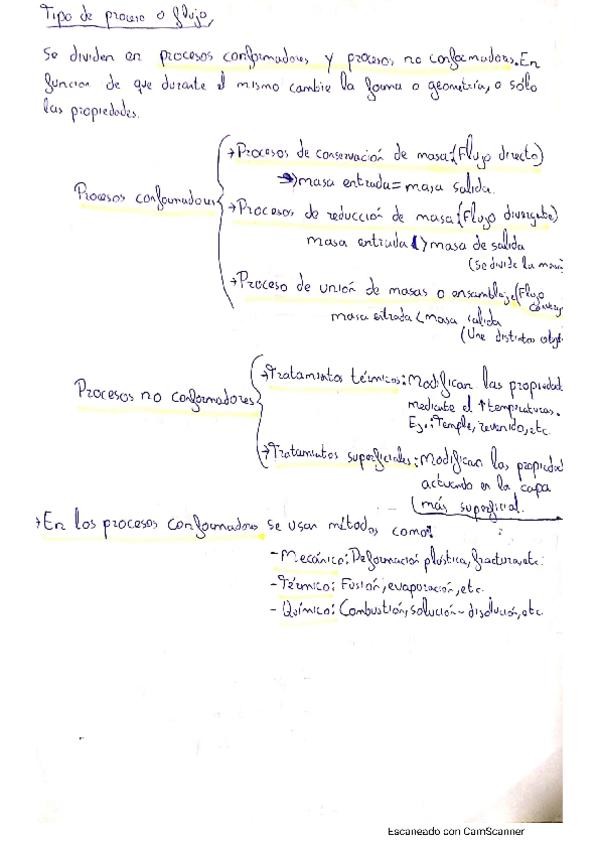 Tipo de proceso o flujo,
Se dividen en procesos conformadores y procesos no conformadores. En
función de que durante el mismo cambie la forma o geometría, o sólo
las propiedades.
Procesos conformadores
→ Procesos de conservación de masa: (Flujo directo)
→ masa entrada = masa salida.
→ Procesos de reducción de masa: (Flujo divergente)
masa entrada > masa de salida
(Se divide la masa
→ Proceso de unión de masas o ensamblaje: (Flujo
masa entrada < masa salida
(Une distintos obj
Procesos no conformadores
→ Tratamientos térmicos: Modifican las propiedad
mediante el ↑ temperaturas.
Ej.: Temple, revenido, etc.
→ Tratamientos superficiales: Modifican las propiedad
actuando en la capa
más superficial.
→ En los procesos conformadores se usan métodos como:
- Mecánico: Deformación plástica, fractura, etc.
- Térmico: Fusión, evaporación, etc.
- Químico: Combustión, solución - disolución, etc.
Escaneado con CamScanner